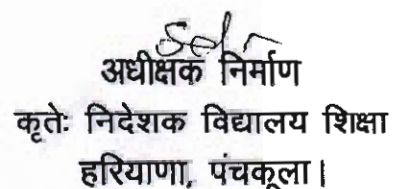 Sd/-
अधीक्षक निर्माण
कृतेः निदेशक विद्यालय शिक्षा
हरियाणा, पंचकूला।